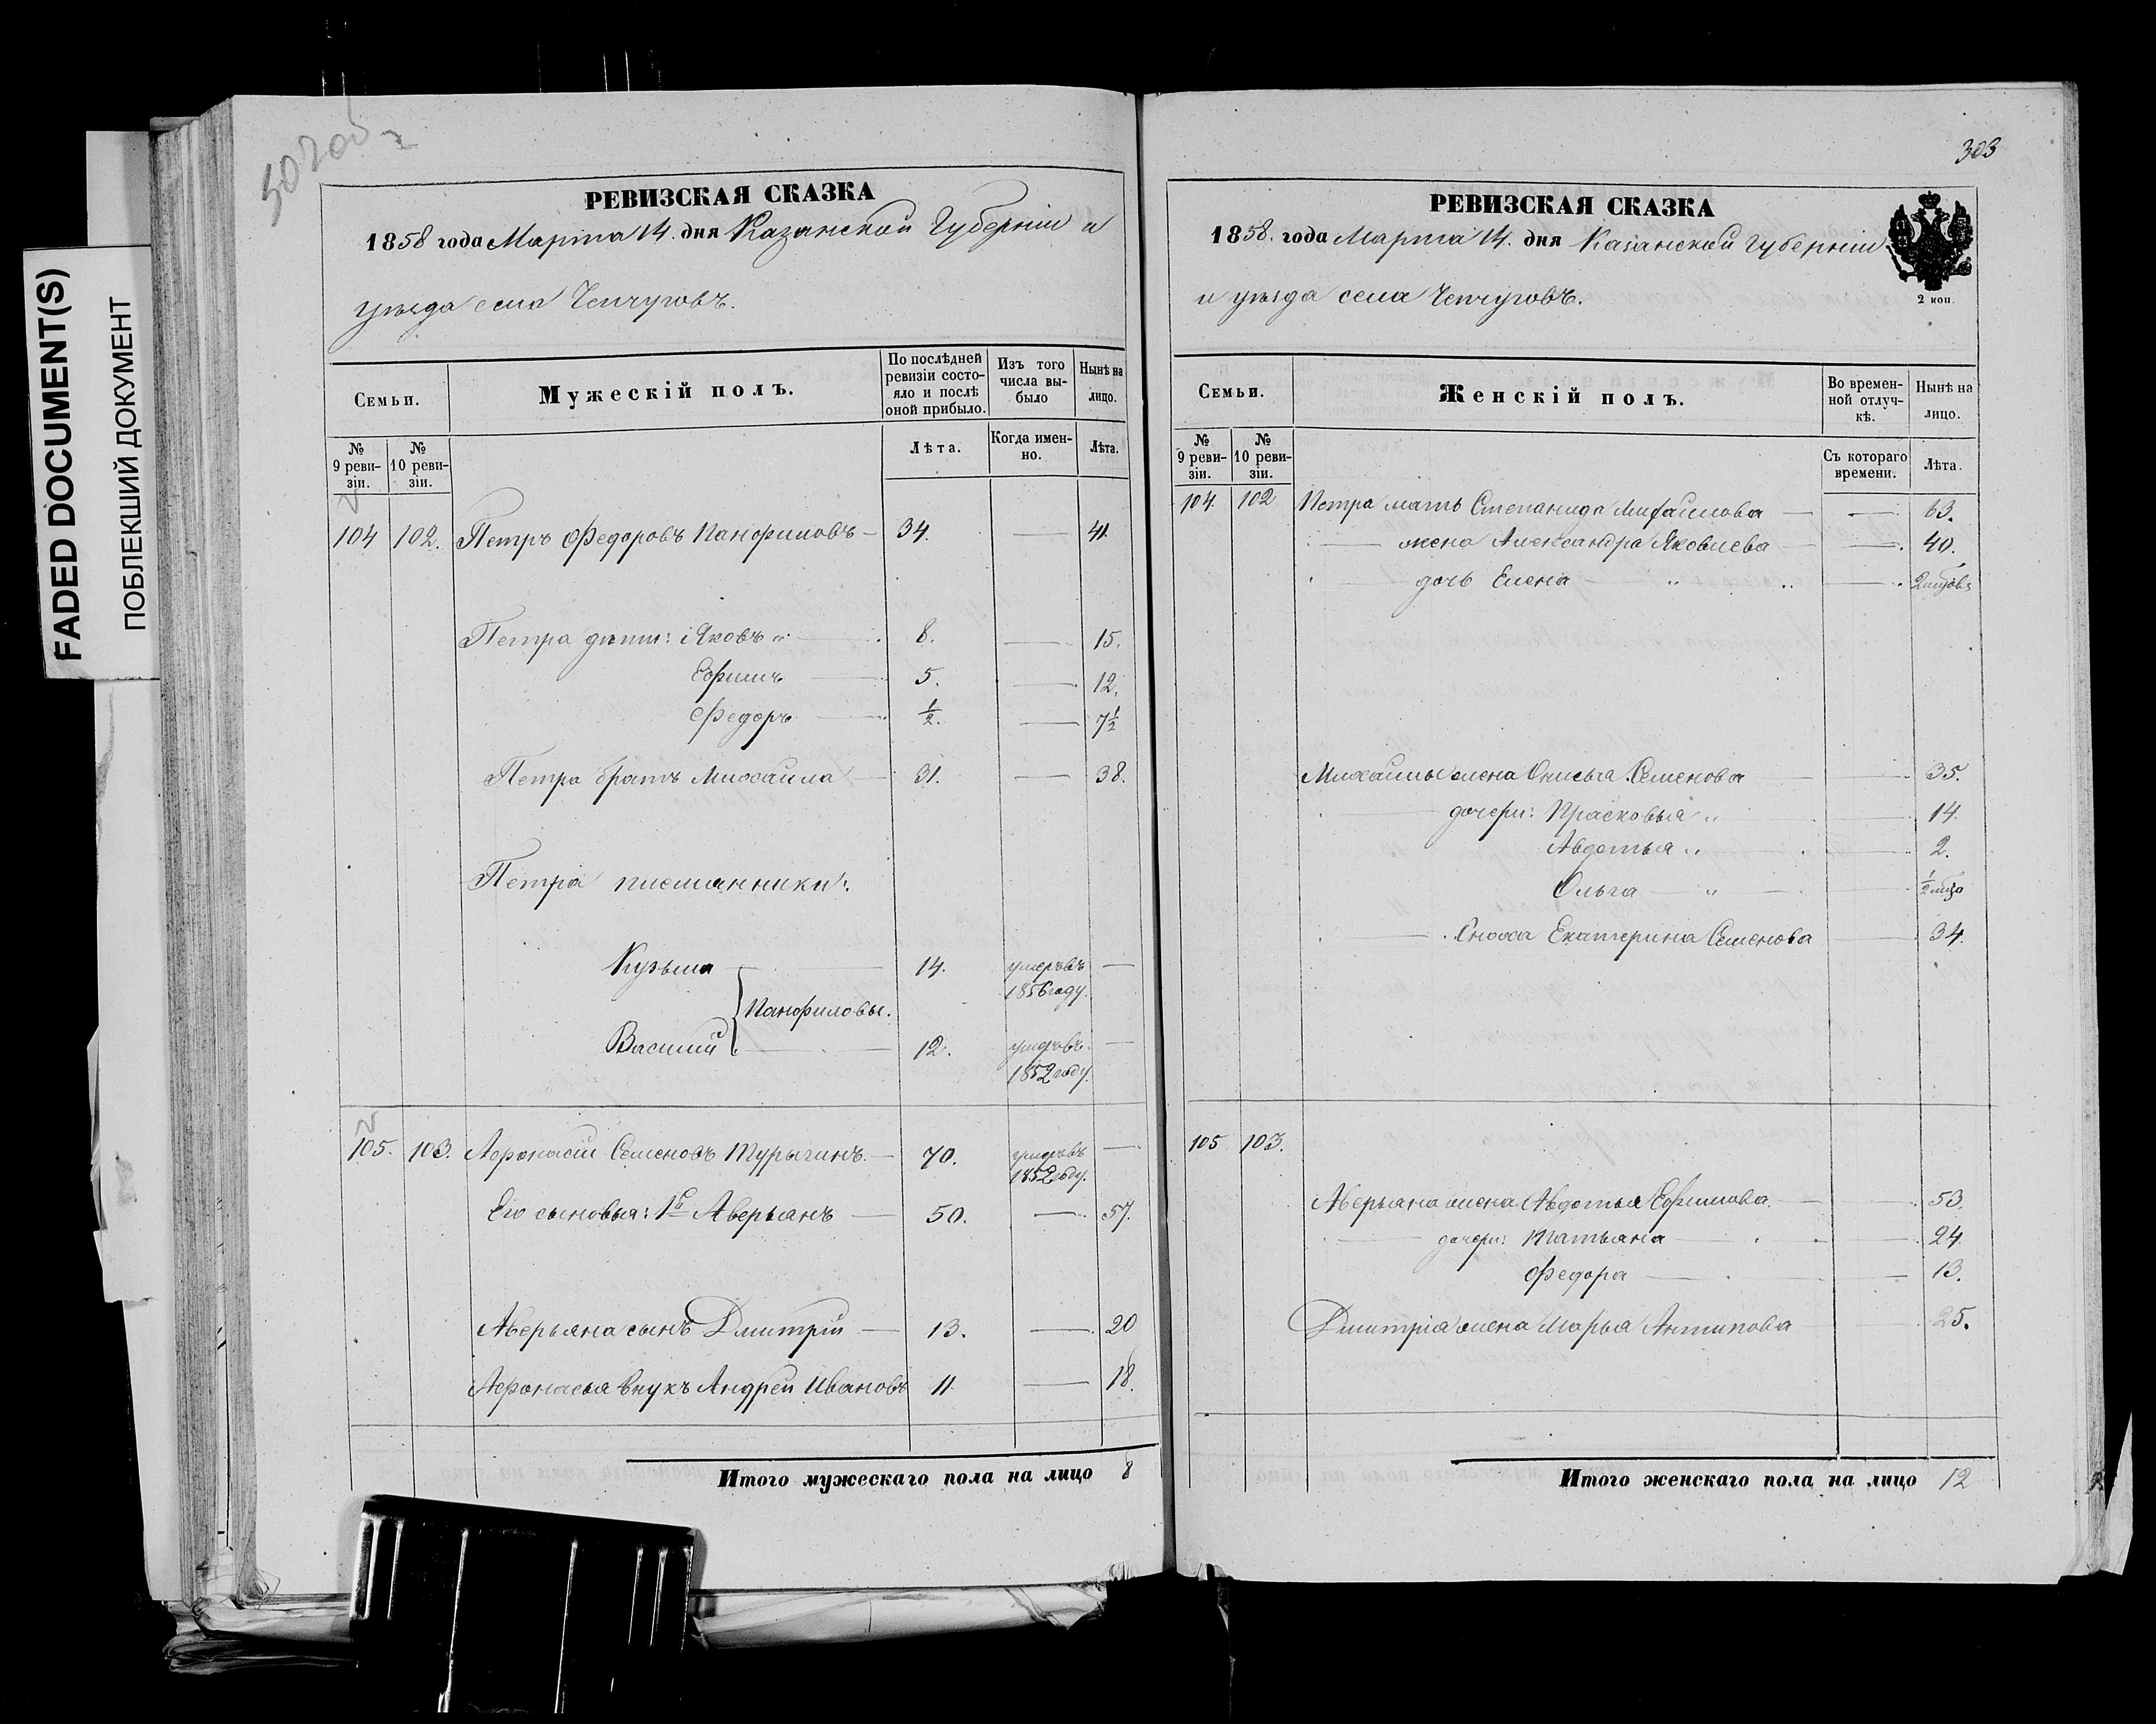 FADED DOCUMENT(S)
ПОБЛЕКШИЙ ДОКУМЕНТ
302об
РЕВИЗСКАЯ СКАЗКА
1858 года Марта 14. дня Казанской Губерніи и
уѣзда села Чепчуговъ.
Семьи.
Мужескій полъ.
По послѣдней ревизіи состояло и послѣ оной прибыло.
Изъ того числа выбыло
Нынѣ на лицо.
№ 9 ревизіи.
№ 10 ревизіи.
Лѣта.
Когда именно.
Лѣта.
104 102. Петръ Федоровъ Панфиловъ — 34. — 41.
Петра дѣти: Яковъ — 8. — 15.
Ефимъ — 5. — 12.
Федоръ — ½. — 7½
Петра братъ Михайла — 31. — 38.
Петра племянники:
Кузьма — 14. умеръ въ —
1856 году.
Панфиловы.
Василий — 12. умеръ въ —
1852 году.
105. 103. Афонасій Семеновъ Турыгинъ — 70. умеръ въ —
1852 году.
Его сыновья: 1й Аверьянъ — 50. — 57.
Аверьяна сынъ Дмитрій — 13. — 20
Афонасья внукъ Андрей Ивановъ 11 — 18.
Итого мужескаго пола на лицо 8
303
РЕВИЗСКАЯ СКАЗКА
1858. года Марта 14. дня Казанской Губерніи
и уѣзда села Чепчуговъ.
2 коп.
Семьи.
Женскій полъ.
Во временной отлучкѣ.
Нынѣ на лицо.
№ 9 ревизіи.
№ 10 ревизіи.
Съ котораго времени.
Лѣта.
104. 102 Петра мать Степанида Михайлова — — 63.
— жена Александра Яковлева — — 40.
— дочь Елена — — 2
Михайлы жена Онисья Семенова — — 35.
— дочери: Прасковья — 14.
Авдотья — 2.
Ольга — — ½
— Сноха Екатерина Семенова — 34.
105 103.
Аверьяна жена Авдотья Ефимова — — 53.
— дочери: Татьяна — — 24.
Федора — — 13.
Дмитрія жена Марья Антипова 25.
Итого женскаго пола на лицо 12